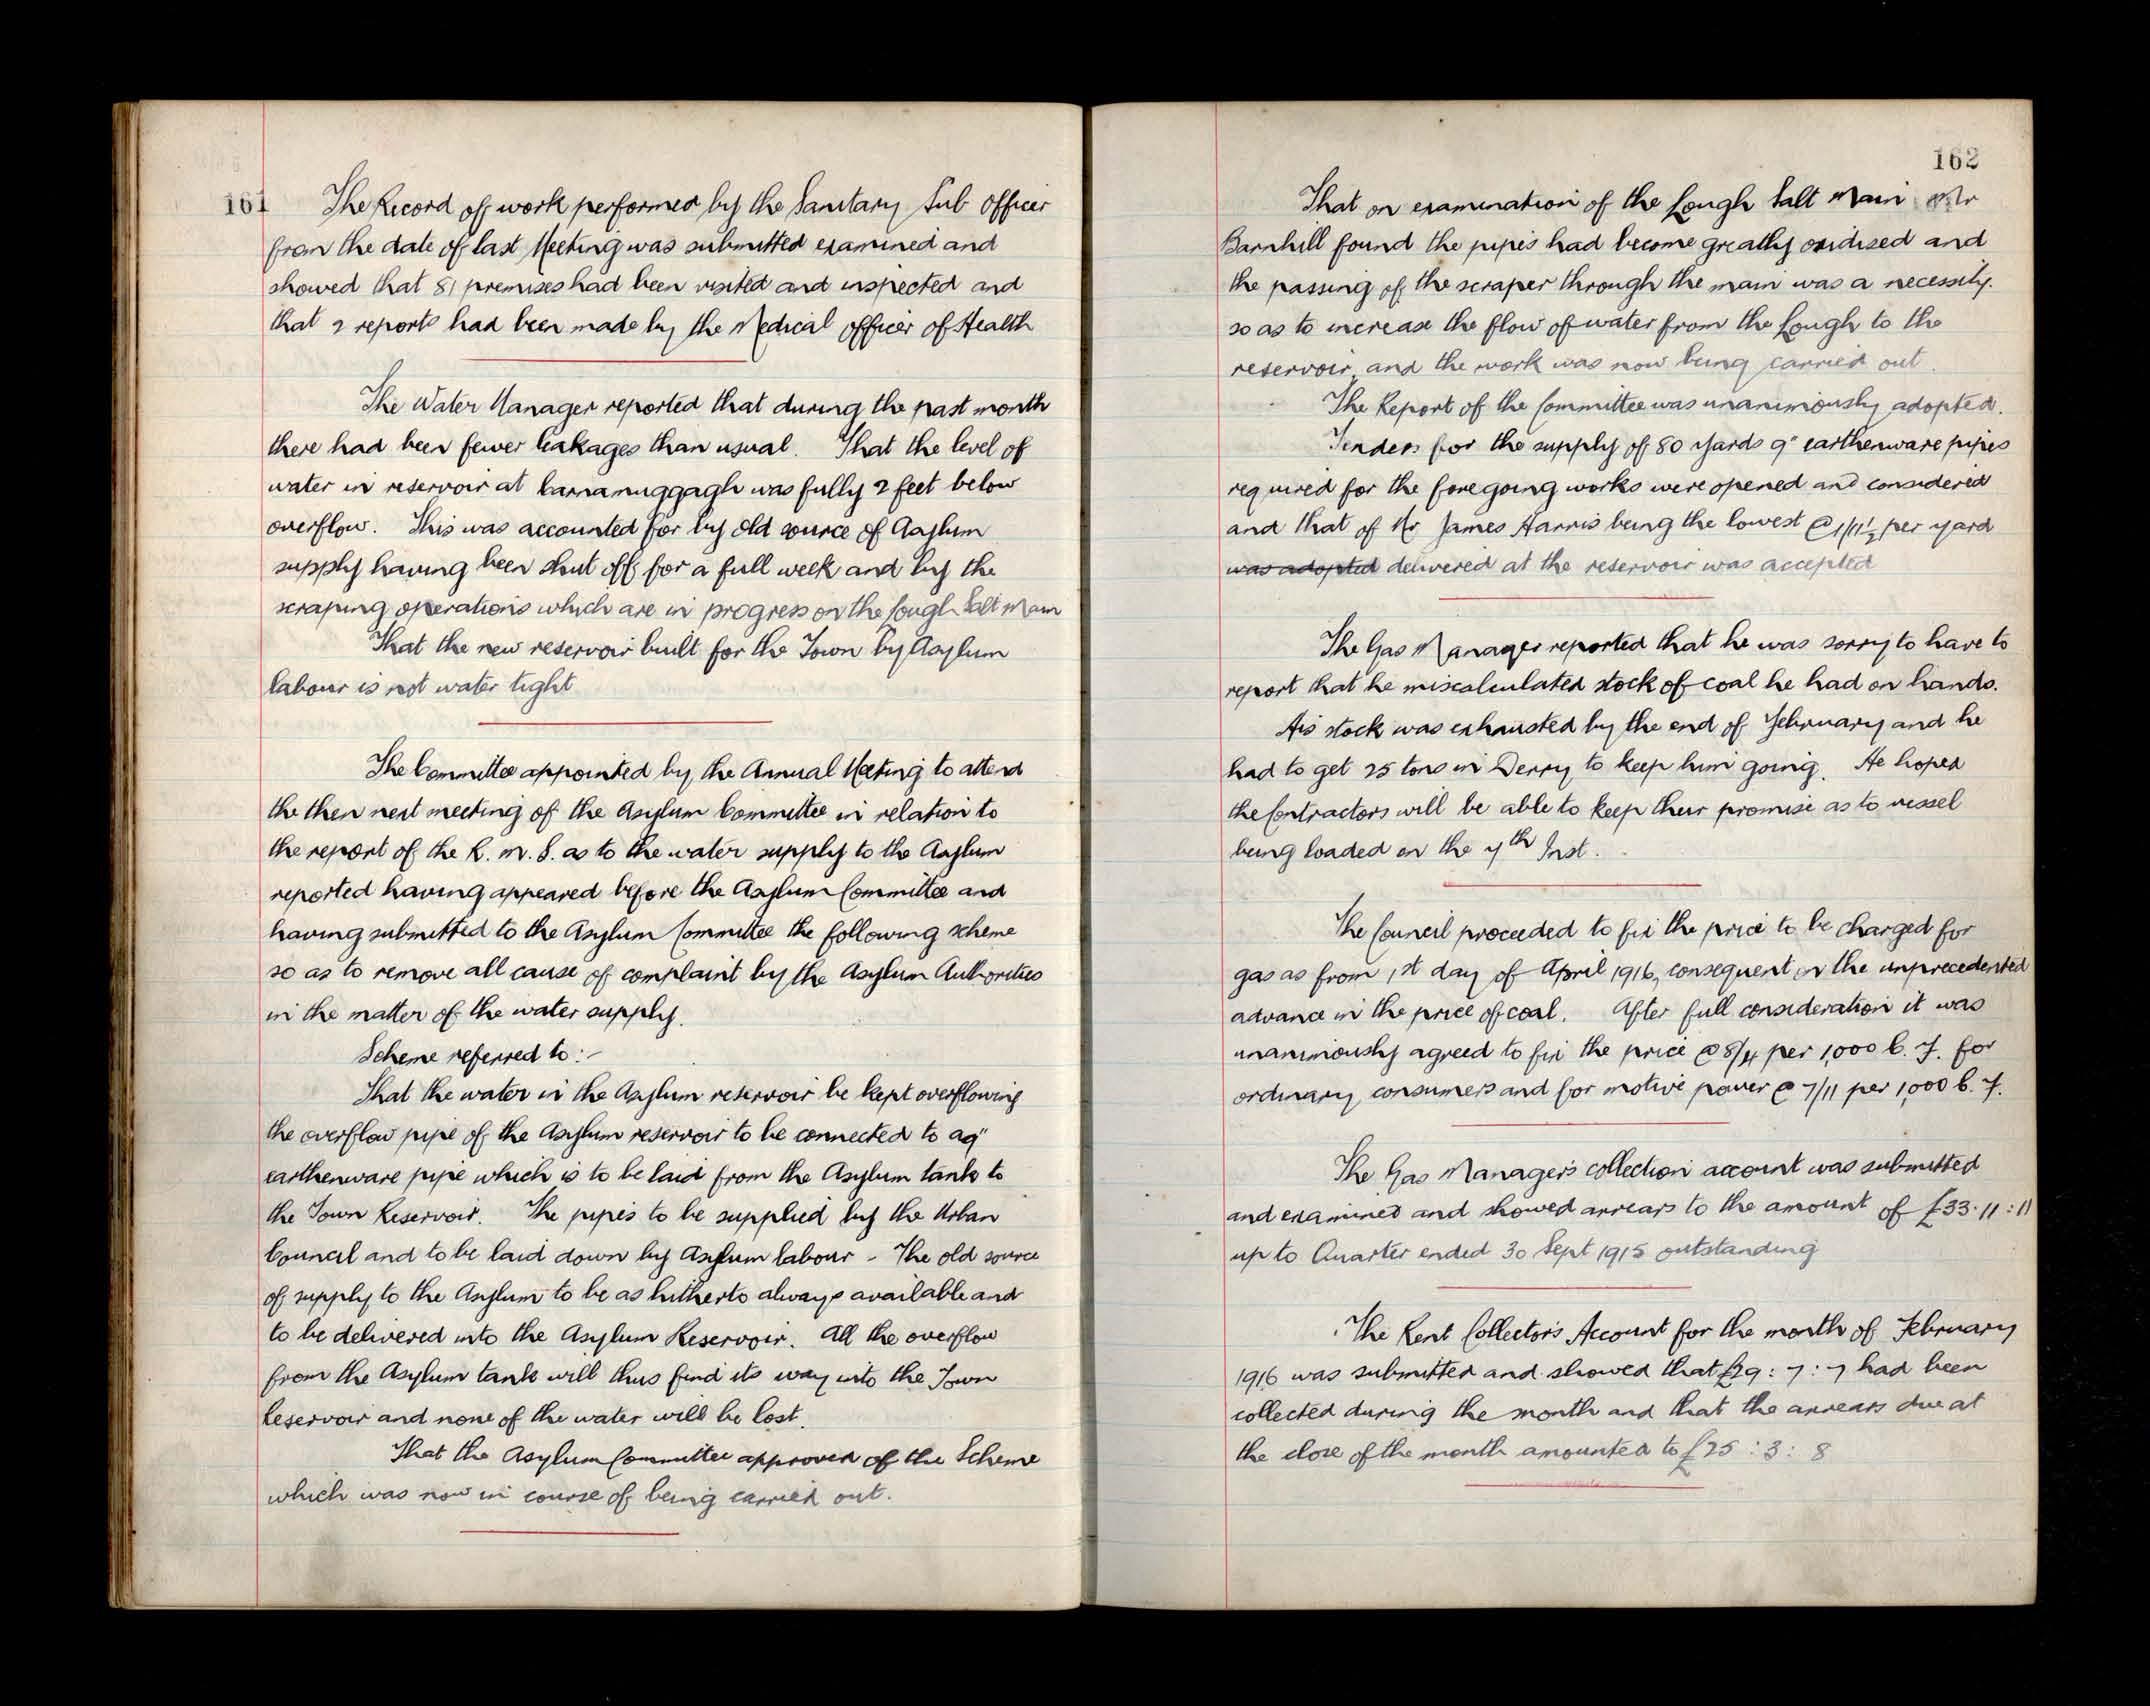 161 The Record of work performed by the Sanitary Sub Officer
from the date of last Meeting was submitted examined and
showed that 81 premises had been visited and inspected and
that 2 reports had been made by the Medical Officer of Health
The Water Manager reported that during the past month
there had been fewer leakages than usual. That the level of
water in reservoir at Carnamuggagh was fully 2 feet below
overflow. This was accounted for by old source of Asylum
supply having been shut off for a full week and by the
scraping operations which are in progress on the Lough Salt Main
That the new reservoir built for the Town by Asylum
labour is not water tight
The Committee appointed by the Annual Meeting to attend
the then next meeting of the Asylum Committee in relation to
the report of the R. M. S. as to the water supply to the Asylum
reported having appeared before the Asylum Committee and
having submitted to the Asylum Committee the following scheme
so as to remove all cause of complaint by the Asylum Authorities
in the matter of the water supply.
Scheme referred to:-
That the water in the Asylum reservoir be kept overflowing
the overflow pipe of the Asylum reservoir to be connected to a 9"
earthenware pipe which is to be laid from the Asylum tank to
the Town Reservoir. The pipes to be supplied by the Urban
Council and to be laid down by Asylum labour - The old source
of supply to the Asylum to be as hitherto always available and
to be delivered into the Asylum Reservoir. All the overflow
from the Asylum tank will thus find its way into the Town
Reservoir and none of the water will be lost.
That the Asylum Committee approved of the Scheme
which was now in course of being carried out.
162
That on examination of the Lough Salt Main Mr
Barnhill found the pipes had become greatly oxidised and
the passing of the scraper through the main was a necessity.
so as to increase the flow of water from the Lough to the
reservoir and the work was now being carried out.
The Report of the Committee was unanimously adopted.
Tenders for the supply of 80 yards 9" earthenware pipes
required for the foregoing works were opened and considered
and that of Mr James Harris being the lowest @ 1/11½ per yard
was adopted delivered at the reservoir was accepted
The Gas Manager reported that he was sorry to have to
report that he miscalculated stock of coal he had on hands.
His stock was exhausted by the end of February and he
had to get 25 tons in Derry to keep him going. He hoped
the Contractors will be able to keep their promise as to vessel
being loaded on the 7th Inst.
The Council proceeded to fix the price to be charged for
gas as from 1st day of April 1916, consequent on the unprecedented
advance in the price of coal. After full consideration it was
unanimously agreed to fix the price @ 8/4 per 1,000 C. F. for
ordinary consumers and for motive power @ 7/11 per 1,000 C. F.
The Gas Manager's collection account was submitted
and examined and showed arrears to the amount of £33 : 11 : 11
up to Quarter ended 30 Sept 1915 outstanding
The Rent Collector's Account for the month of February
1916 was submitted and showed that £29 : 7 : 7 had been
collected during the month and that the arrears due at
the close of the month amounted to £25 : 3 : 8